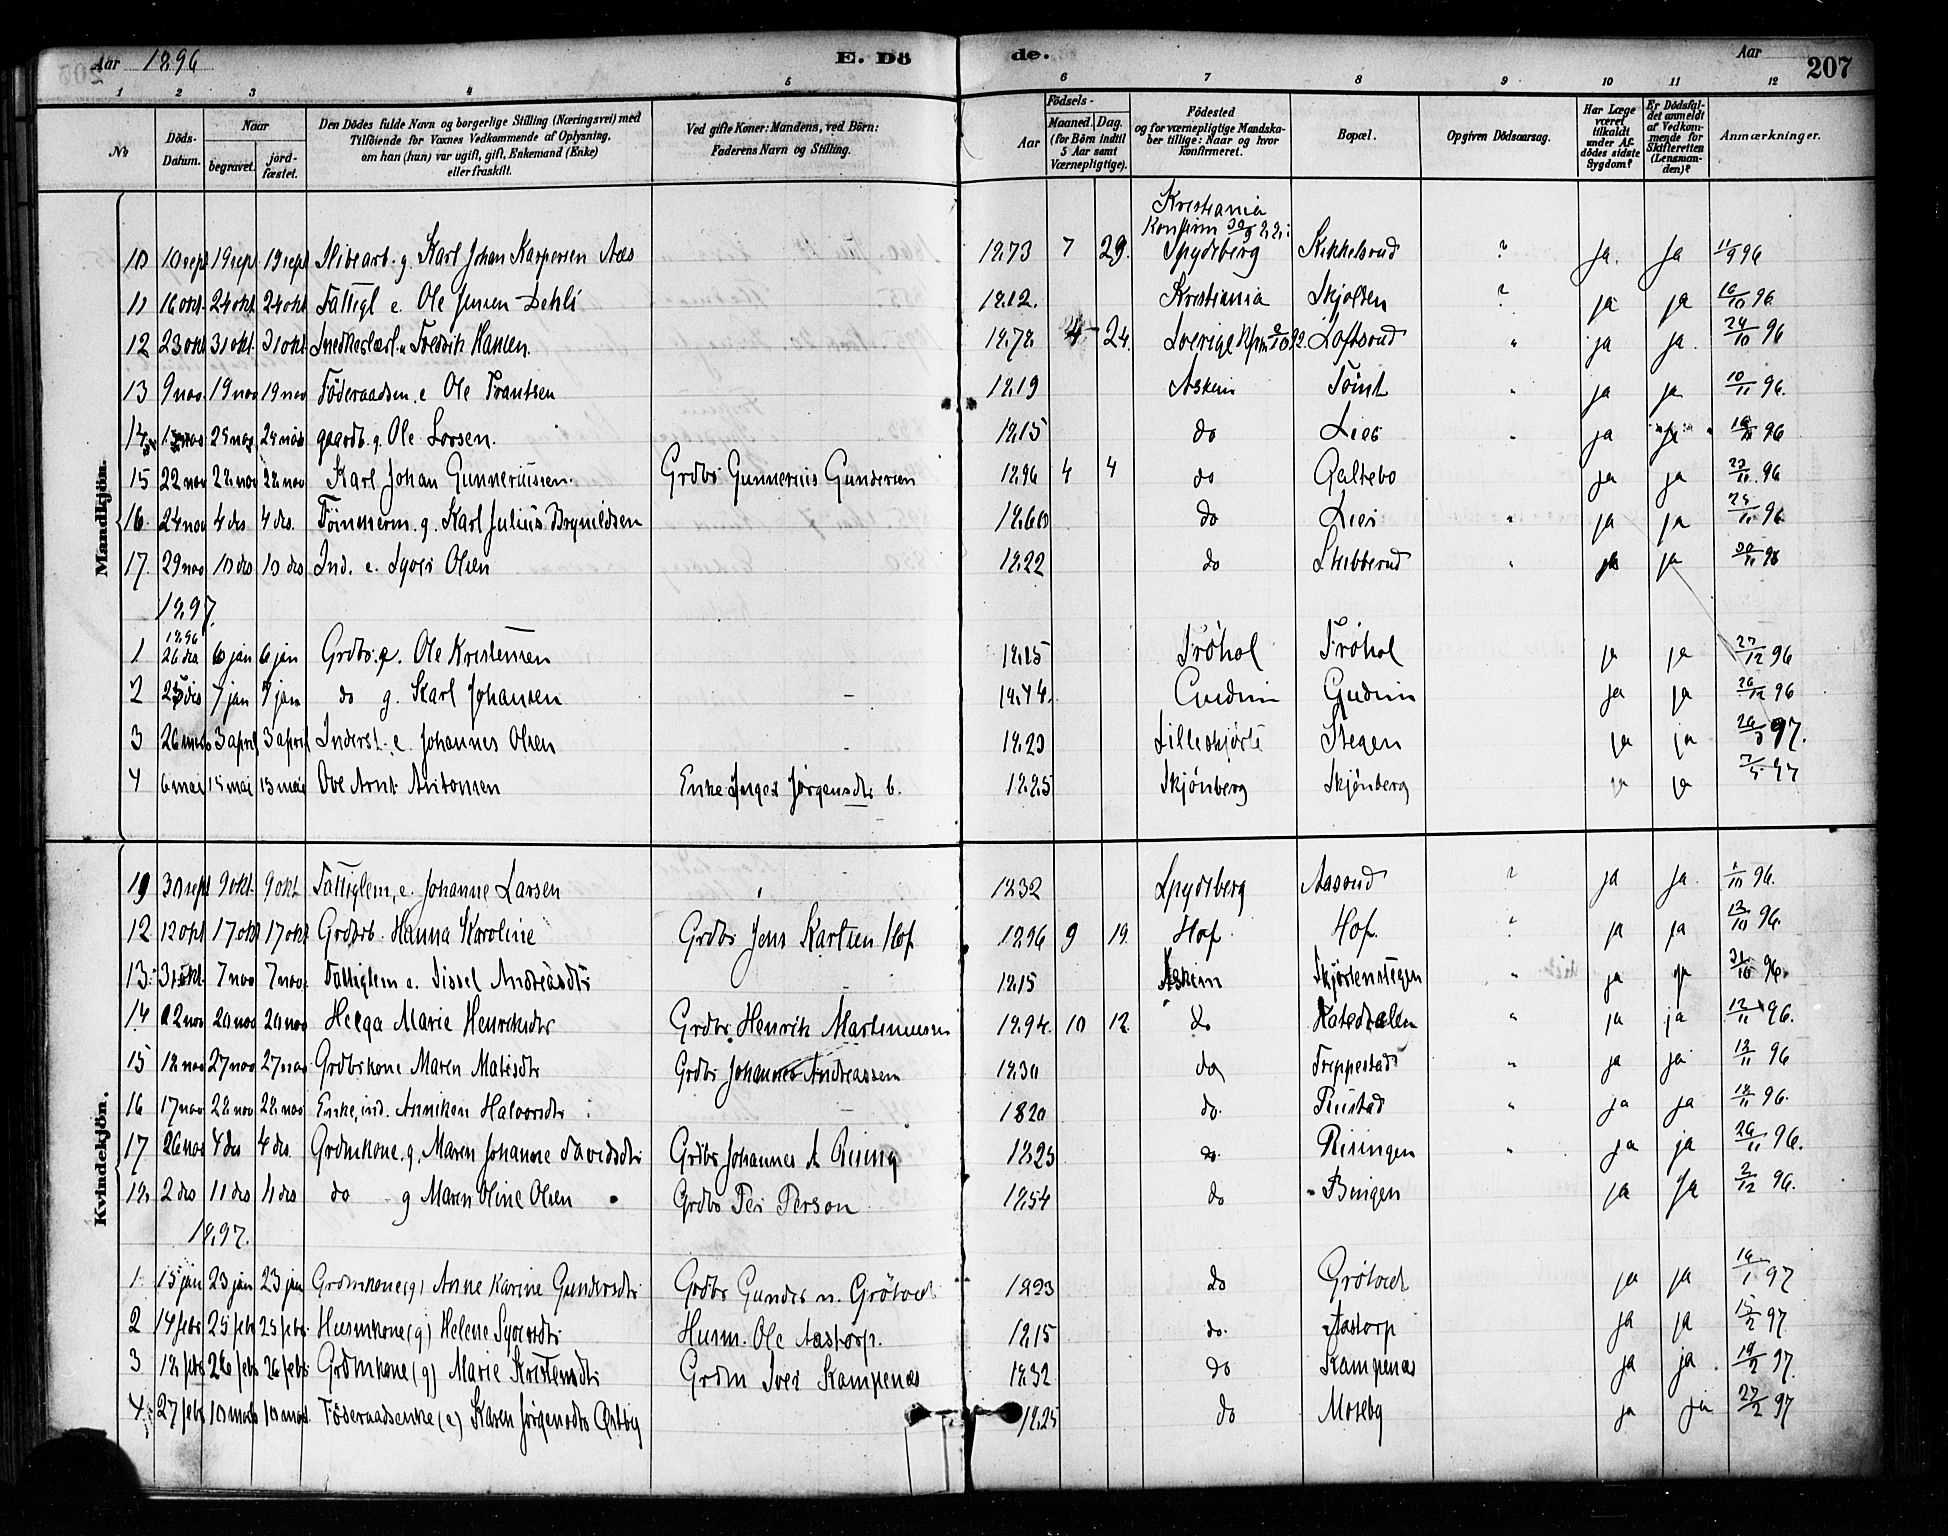 Aar 1896 E. Döde. Aar 207
1 2 3 4 5 6 7 8 9 10 11 12
No
Döds-Datum.
Naar begravet. jord-fæstet.
Den Dödes fulde Navn og borgerlige Stilling (Næringsvei) med Tilföiende for Voxnes Vedkommende af Oplysning, om han (hun) var ugift, gift, Enkemand (Enke) eller fraskilt.
Ved gifte Koner: Mandens, ved Börn: Faderens Navn og Stilling.
Födsels- Aar Maaned. Dag. (for Börn indtil 5 Aar samt Værnepligtige).
Födested og for værnepligtige Mandskaber tillige: Naar og hvor Konfirmeret.
Bopæl.
Opgiven Dödsaarsag.
Har Læge været tilkaldt under Afdödes sidste Sygdom?
Er Dödsfaldet anmeldt af Vedkommende for Skifteretten (Lensmanden)?
Anmærkninger.
Mandkjön.
Kristiania
10 10 sept 19 sept 19 sept g. Karl Johan Kaspersen Aas 1873 7 29 Spydeberg Kikkelsrud ? Ja. Ja 11/9 96
11 16 okt. 24 okt 24 okt Fattigl e. Ole Jensen Dehli 1812. Kristiania Skjolden ? ja ja 16/10 96
12 23 okt 31 okt. 31 okt Snedkerlærl. u Fredrik Hansen. 1878 4 24. Sverige Løftsrud " ja ja. 24/10 96
13 9 nov. 19 nov 19 nov Föderaadsm. e Ole Frantsen 1819 Askim Tömt " ja ja 10/11 96.
14 25 nov 25 nov gaardb. g. Ole Larsen. 1815 do Lies " ja ja 96
15 22 nov 28. nov 28 nov Karl Johan Gunneriussen. Grdbr Gunnerius Gundersen 1896 4 4 do Galtebo ja ja 23/11 96
16. 24 nov 4 des 4 des. Tömmerm. g. Karl Julius Brynildsen 1860 do Lies " ja ja 25/11 96.
17. 29 nov 10 des 10 des Ind. e. Syver Olsen 1822 do Skibberud " ja ja 30/11 96
1897.
1 1896 26 des 6 jan 6 jan Grdbr. g. Ole Kristensen 1815 Fröhol Fröhol ja ja 27/12 96
2 des 7 jan 7 jan do g. Karl Johansen 1844. Gudim Gudim ja ja 26/12 96
3 26 mars 3 april 3 april Inderst. e. Johannes Olsen 1823 Lilleskjørte Stegen ja ja 97.
4 6 mai 15 mai 15 mai Ove Arnt Antonsen Enke Inger Jørgensdtr 6. 1825 Skjönberg Skjönberg ja ja 97
Kvindekjön.
19 30 sept 9 okt. 9 okt Fattiglem, e. Johanne Larsen 1832 Spydeberg Aasrud ? ja ja. 1/10 96.
12 12 okt 17 okt 17 okt Grdbrb. Hanna Karoline Grdbr Jens Karlsen Hof 1896 9 19. Hof Hof. ja ja 13/10 96.
13. 31 okt 7 nov 7 nov. Fattiglem e. Sissel Andreasdtr 1815 Askim Skjörtenstegen " ja ja 31/10 96.
14 12 nov 20 nov 20 nov Helga Marie Henriksdtr Grdbr. Henrik Martinussen 1894. 10 12 do " ja ja 12/11 96.
15 12 nov 27 nov 27 nov Grdbrkone Maren Matisdtr Grdbr Johannes Andreassen 1830 do Treppestad " ja ja 13/11 96
16 17 nov 28 nov 28. nov Enke, ind. Anniken Halvorsdtr 1820 do. Rustad " ja ja 18/11 96.
17 26 nov 4 des 4 des. Grdmkone. g, Maren Johanne Davidsdtr Grdbr Johannes A Rising 1825 do Risingen " ja ja 26/11 96.
18. 2 des 11 des 11 des do g Maren Oline Olsen Grdbr Per Person 1854 do Bingen ja Ja 2/12 96.
1897.
1. 15 jan 23 jan 23 jan Grdmkone (g) Anne Karine Gundersdtr Grdbr Gunder n. Grötvedt 1823 do Grötvedt ja ja 16/1 97
2 14 febr 25 febr 25 febr. Husmkone (g) Helene Syversdtr Husm. Ole Aastorp. 1815 do. Aastorp ja ja 15/2 97
3 18 febr 26 febr 26 febr Grdmkone (g) Marie Kristensdtr Grdm Iver Kampenæs 1832 do Kampenæs ja ja. 19/2 97.
4. 27 febr 10 mars 10 mars Föderaadsenke (e) Karen Jörgensdtr Ørtby 1825 do Moseby ja ja 27/2 97